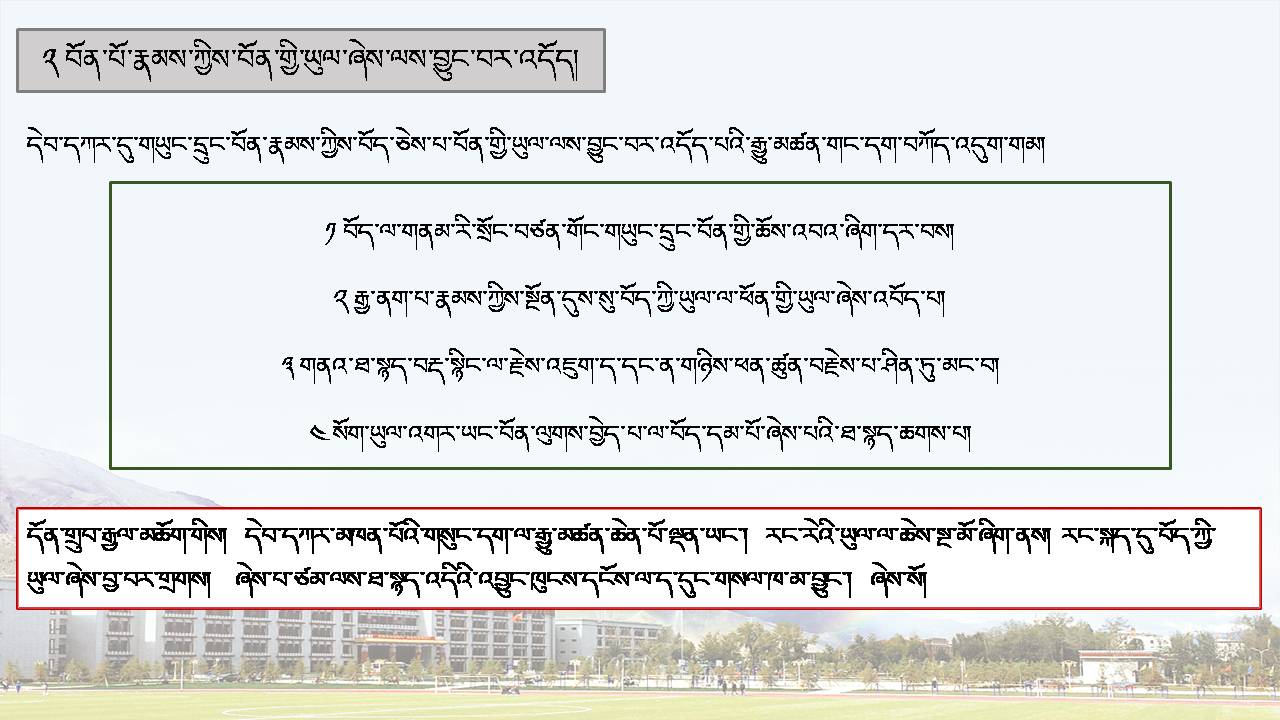 ༢ བོན་པོ་རྣམས་ཀྱིས་བོན་གྱི་ཡུལ་ཞེས་ལས་བྱུང་བར་འདོད།
དེབ་དཀར་དུ་གཡུང་དྲུང་བོན་རྣམས་ཀྱིས་བོད་ཅེས་པ་བོན་གྱི་ཡུལ་ལས་བྱུང་བར་འདོད་པའི་རྒྱུ་མཚན་གང་དག་བཀོད་འདུག་གམ།
༡ བོད་ལ་གནམ་རི་སྲོང་བཙན་གོང་གཡུང་དྲུང་བོན་གྱི་ཆོས་འབའ་ཞིག་དར་བས།
༢ རྒྱ་ནག་པ་རྣམས་ཀྱིས་སྔོན་དུས་སུ་བོད་ཀྱི་ཡུལ་ལ་ཕོན་གྱི་ཡུལ་ཞེས་འབོད་པ།
༣ གནའ་ཐ་སྙད་བརྡ་སྙིང་ལ་རྗེས་འཇུག་ད་དང་ན་གཉིས་ཕན་ཚུན་བརྗེས་པ་ཤིན་ཏུ་མང་བ།
༤ སོག་ཡུལ་འགར་ཡང་བོན་ལུགས་བྱེད་པ་ལ་བོད་དམ་པོ་ཞེས་པའི་ཐ་སྙད་ཆགས་པ།
དོན་གྲུབ་རྒྱལ་མཆོག་གིས།  དེབ་དཀར་མཁན་པོའི་གསུང་དག་ལ་རྒྱུ་མཚན་ཆེན་པོ་ལྡན་ཡང་།  རང་རེའི་ཡུལ་ལ་ཆེས་སྔ་མོ་ཞིག་ནས། རང་སྐད་དུ་བོད་ཀྱི་
ཡུལ་ཞེས་བྱ་བར་གྲགས།  ཞེས་པ་ཙམ་ལས་ཐ་སྙད་འདིའི་འབྱུང་ཁུངས་དངོས་ལ་ད་དུང་གསལ་ཁ་མ་བྱུང་།  ཞེས་སོ།